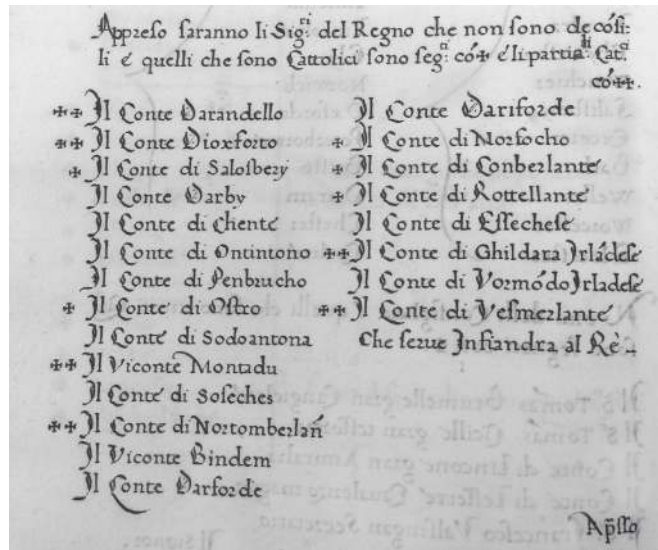 Appreso saranno li Sig:ri del Regno che non sono de cósi-
li é quelli che sono Cattolici sono seg:ti có ✠ é li partia:lli Cat:ci
có ✠✠.
✠✠ Il Conte Darandello
✠✠ Il Conte Dioxforto
✠ Il Conte di Salosbery
Il Conte Darby
Il Conte di Chente
Il Conte di Ontintono
Il Conte di Penbrucho
✠ Il Conte di Ostro
Il Conte di Sodoantona
✠✠ Il Viconte Montadu
Il Conte di Soseches
✠✠ Il Conte di Nortomberlań
Il Viconte Bindem
Il Conte Darforde
Il Conte Dariforde
✠ Il Conte di Norfocho
✠ Il Conte di Conberlanté
✠ Il Conte di Rottellanté
Il Conte di Essechese
✠✠ Il Conte di Ghildara Irládese
Il Conte di Vormódo Irladese
✠✠ Il Conte di Vesmerlanté
Che serue Infiandra al Rè -
Ap̃sso